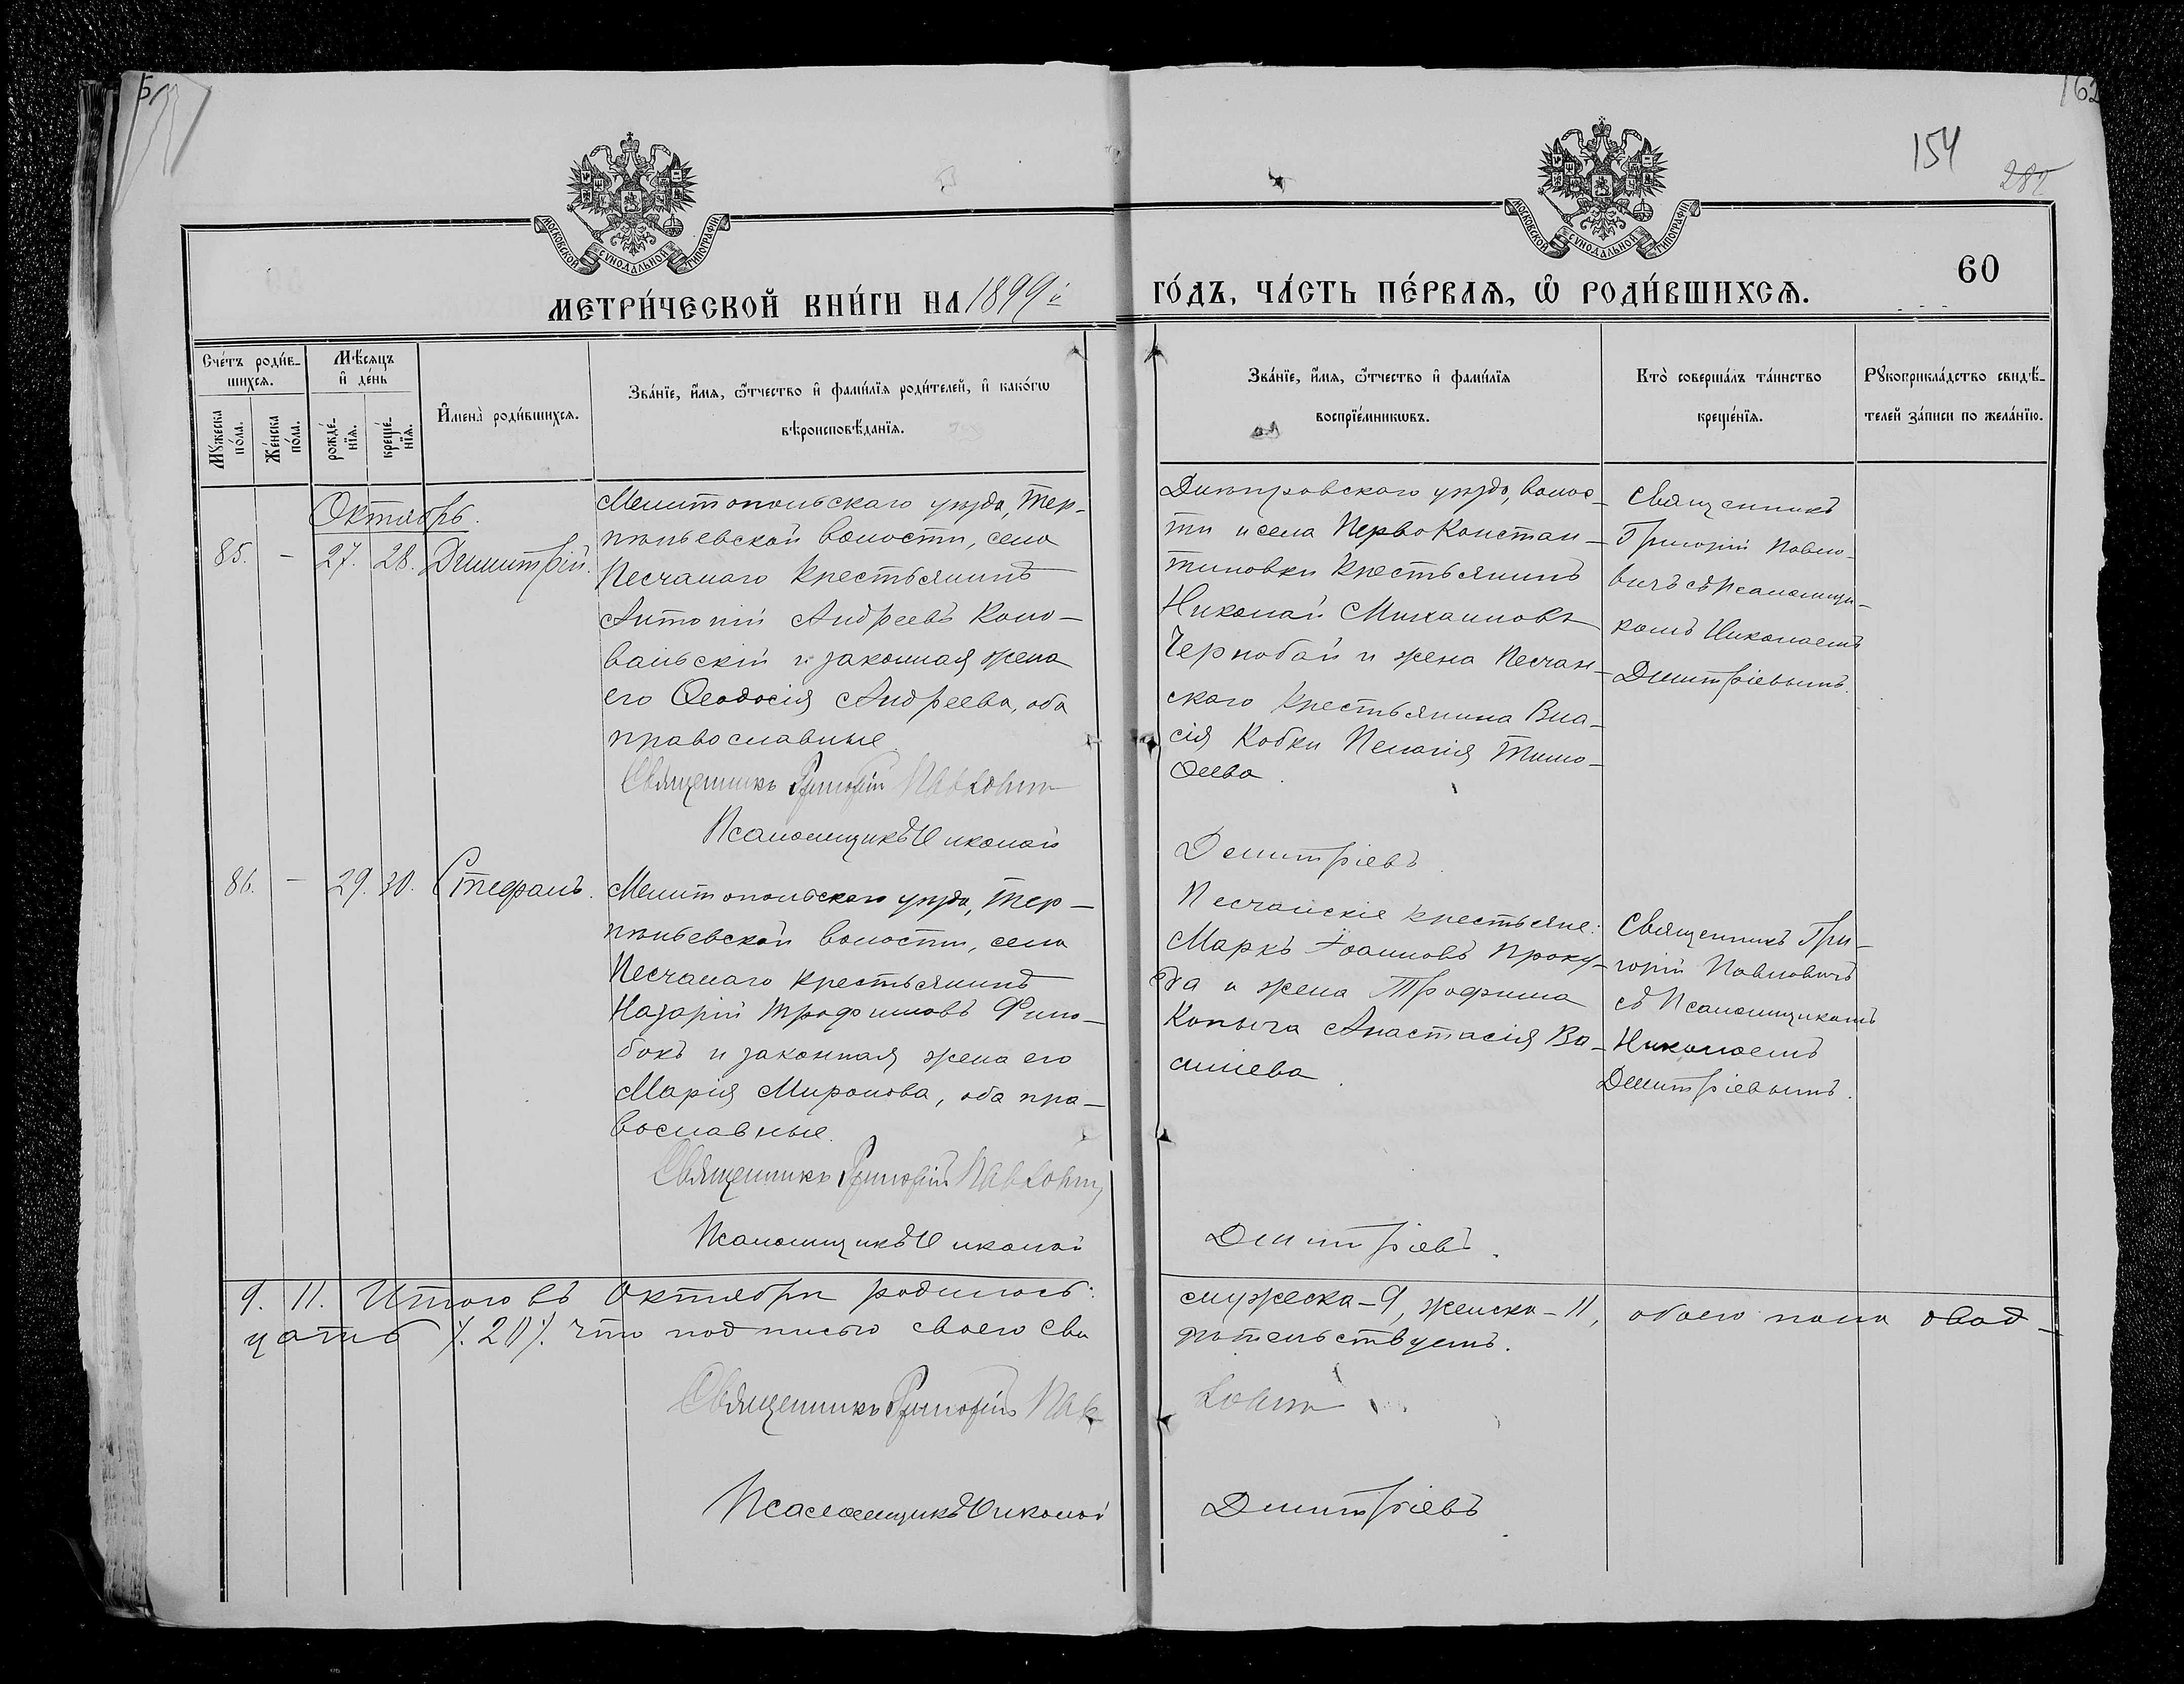 162
154
282
МОСКОВСКОЙ СѴНОДАЛЬНОЙ ТИПОГРАФІИ
МОСКОВСКОЙ СѴНОДАЛЬНОЙ ТИПОГРАФІИ
60
МЕТРИ́ЧЕСКОЙ КНИ́ГИ НА 1899й
ГО́ДЪ, ЧА́СТЬ ПЕ́РВАѦ, Ѡ҆ РОДИ́ВШИХСѦ.
Сче́тъ роди́в-
шихсѧ.
Мꙋ́жеска по́ла.
Же́нска по́ла.
Мѣ́сѧцъ
и҆ де́нь
рожде́-нїѧ.
креще́-нїѧ.
И҆мена̀ роди́вшихсѧ.
Зва́нїе, и҆́мѧ, ѻ҆́тчество и҆ фами́лїѧ роди́телей, и҆ како́гѡ
вѣроисповѣ́данїѧ.
Зва́нїе, и҆́мѧ, ѻ҆́тчество и҆ фами́лїѧ
воспрїе́мникѡвъ.
Кто̀ соверша́лъ та́инство
креще́нїѧ.
Рꙋкоприкла́дство свидѣ́-
телей за́писи по жела́нїю.
Октябрь.
85. - 27. 28. Димитрій.
Мелитопольскаго уѣзда, Тер-
пѣньевской волости, села
Песчанаго крестьянинъ
Антоній Андреевъ Коно-
вальскій и законная жена
его Ѳеодосія Андреева, оба
православные.
Священникъ Григорій Павловичъ
Псаломщикъ Николай
Днѣпровскаго уѣзда, волос-
ти и села Перво Констан-
тиновки крестьянинъ
Николай Михаиловъ
Чернобай и жена Песчан-
скаго крестьянина Вла-
сія Кобки Пелагія Тимо-
ѳеева.
Димитріевъ
Священникъ
Григорій Павло-
вичъ съ Псаломщи-
комъ Николаемъ
Димитріевымъ.
86. - 29. 30. Стефанъ.
Мелитопольскаго уѣзда, Тер-
пѣньевской волости, села
Песчанаго крестьянинъ
Назарій Трофимовъ
и законная жена его
Марія Миронова, оба пра-
вославные.
Священникъ Григорій Павловичъ
Псаломщикъ Николай
Песчанскіе крестьяне:
Маркъ Іоанновъ Проку-
да и жена Трофима
Копыча Анастасія Ва-
силіева.
Димитріевъ.
Священникъ Гри-
горій Павловичъ
съ Псаломщикомъ
Николаемъ
Димитріевымъ.
9. 11. Итого въ Октябрѣ родилось: мужеска - 9, женска - 11, обоего пола двад-
цать /. 20 /. что подписью своею сви
дѣтельствуемъ.
Священникъ Григорій Пав
ловичъ
Псаломщикъ Николай
Димитріевъ